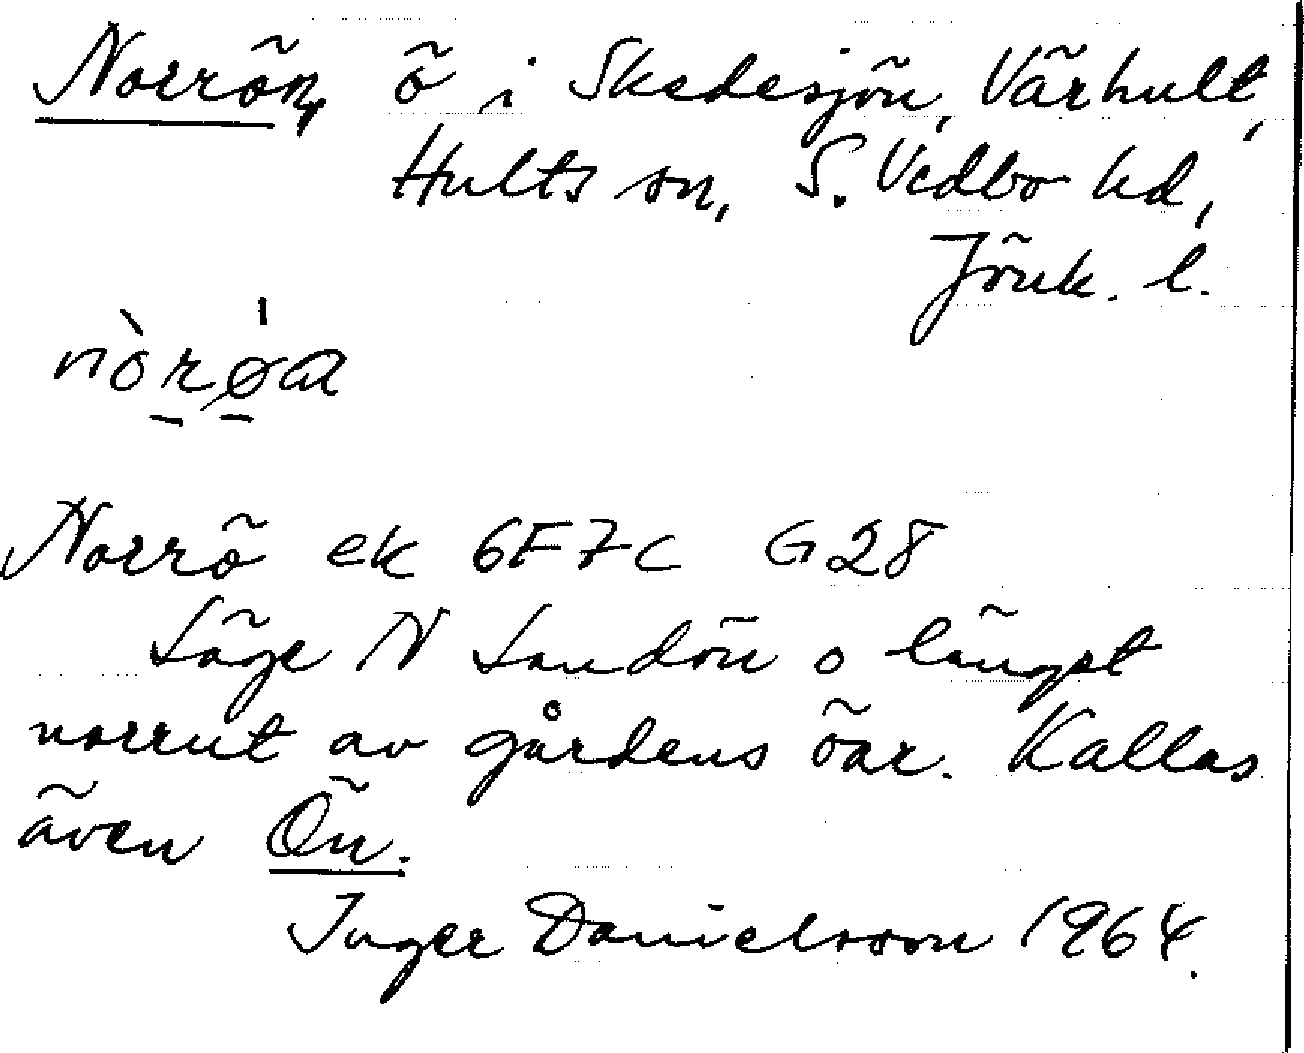 Norrön, ö i Skedesjön, Värhult,
Hults sn, S. Vedbo hd,
Jönk. l.
nòrø̀a
Norrö ek 6F7c G28
Läge N Sandön o längst
norrut av gårdens öar. Kallas
även Ön.
Inger Danielsson 1964.